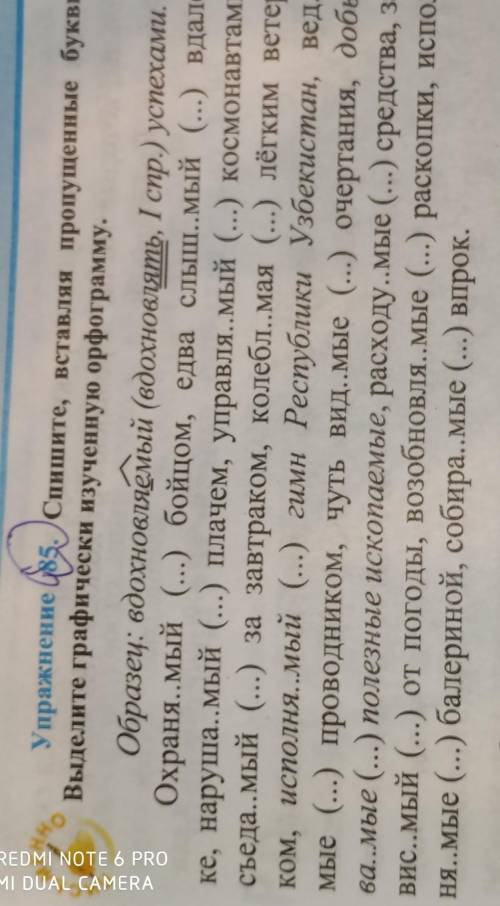 Упражнение 85. Спишите, вставляя пропущенные
Выделите графически изученную орфограмму.
Образец: вдохновляемый (вдохновлять, I спр.) успехами.
Охраня..мый (...) бойцом, едва слыш..мый (...)
ке, наруша..мый (...) плачем, управля..мый (...)
съеда..мый (...) за завтраком, колебл..мая (...) лёгким
ком, исполня..мый (...) гимн Республики Узбекистан,
мые (...) проводником, чуть вид..мые (...) очертания,
ва..мые (...) полезные ископаемые, расходу..мые (...) средства,
вис..мый (...) от погоды, возобновля..мые (...) раскопки,
ня..мые (...) балериной, собира..мые (...) впрок.
REDMI NOTE 6 PRO
MI DUAL CAMERA